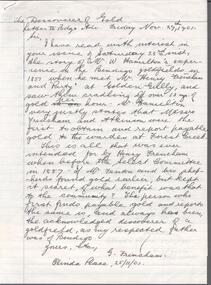 The Discoverer of Gold
Letter to Bdgo. Adv. Friday Nov. 29th 1901.
Sir,
I have read with interest in
your issue of Saturday 23rd inst,
the story of Mr W Hamilton's exper-
ience on the Bendigo goldfields in
1851 when he met Mr Henry Frencham
and Party at Golden Gully, and
saw them
gold in hour. Mr Hamilton
correctly states that Messrs
Frencham and Atkinson were the
first to obtain and report payable
gold to the warden at Forest Creek.
This is all that was ever
intended for by Henry Frencham
when before the Select Committee
in 1887. If Mr and two shep-
herds found gold earlier, but kept
it secret, of what benefit was that
to the community? The person who
first finds payable gold and reports
the same is, and always has been,
the acknowledged discoverer of a
goldfield, as my respected father
was of Bendigo.
Yours, &c.,
G. Frencham.
Place, 25/11/01.